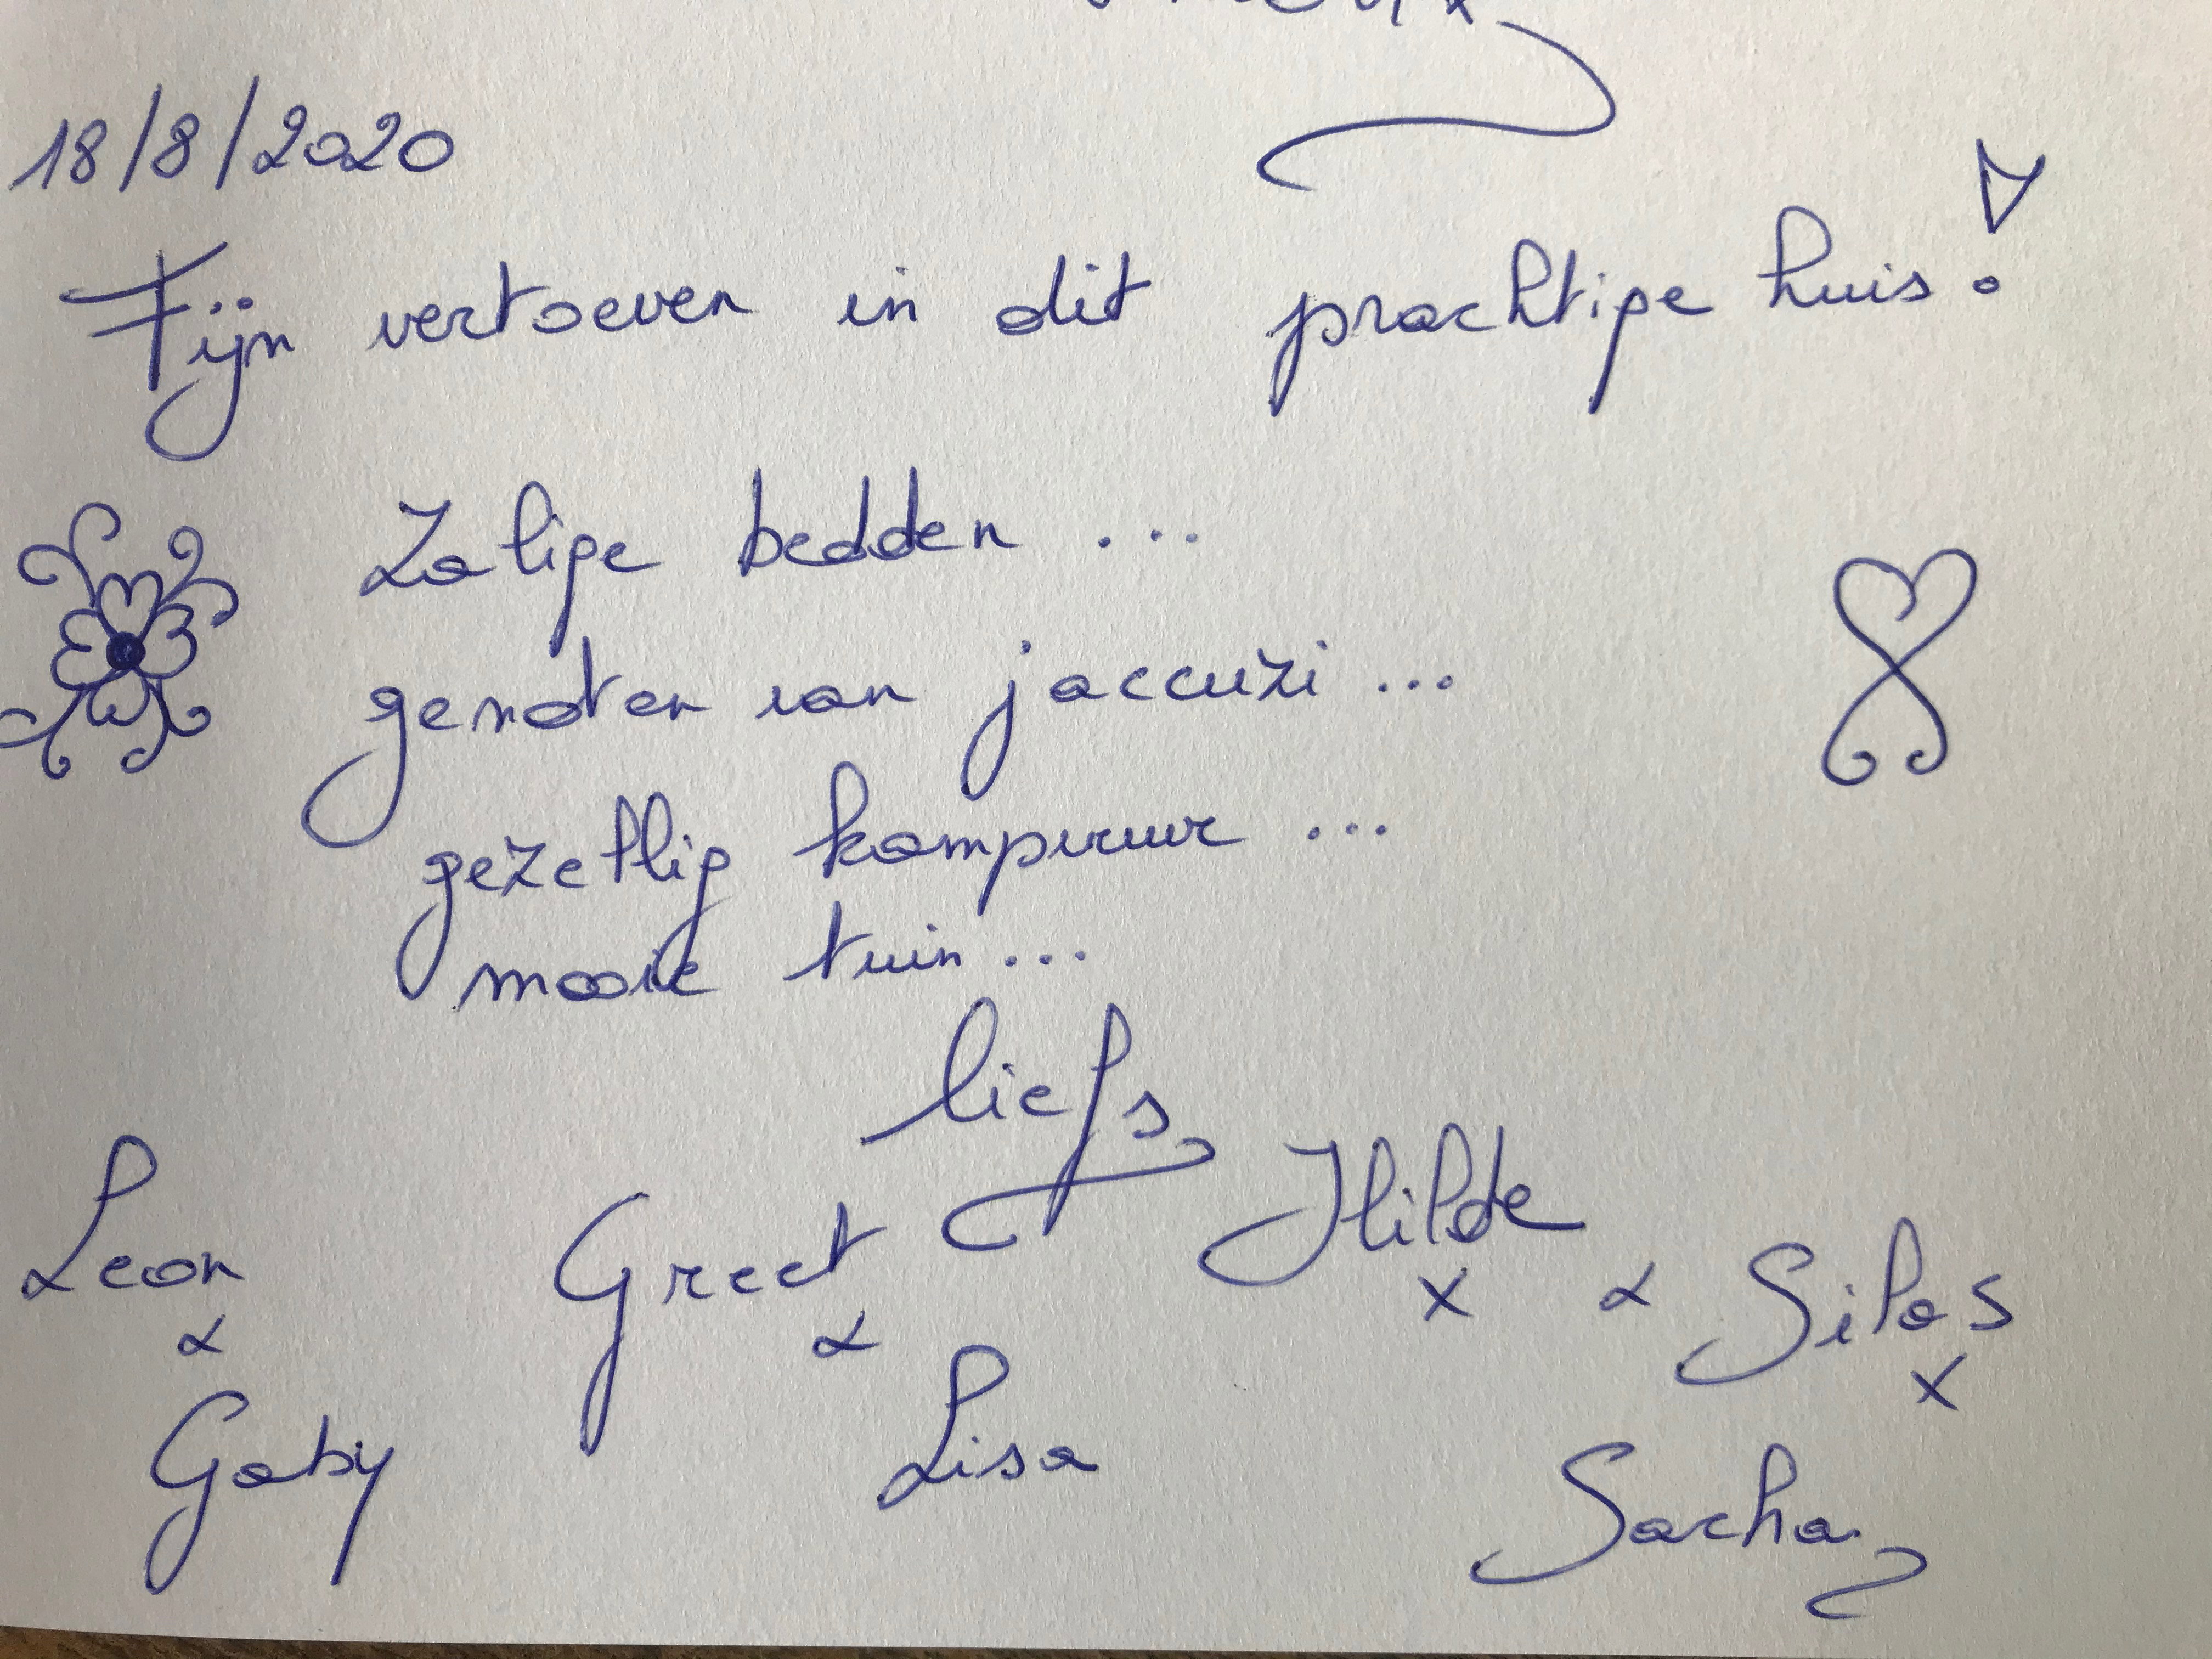 18/8/2020
Fijn vertoeven in dit prachtige huis!
Zalige bedden ...
genoten van jaccuzi ...
gezellig kampvuur ...
mooie tuin ...
liefs,
Leon & Gaby
Greet & Lisa
Hilde x & Silas x
Sacha